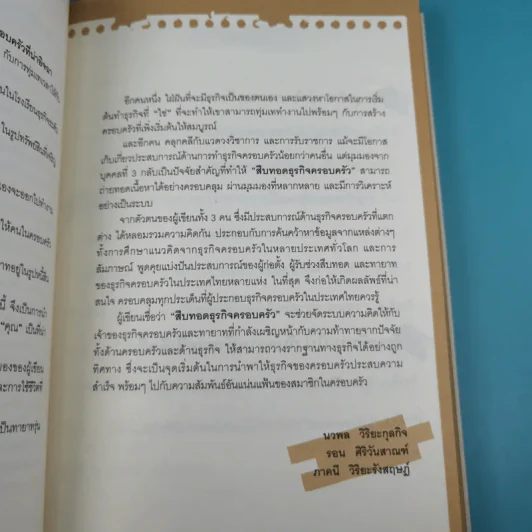 อบครัวที่น่าอิจฉา
กับการทุ่มเทเวลา
ให้คนในครอบครัว
อีกคนหนึ่ง ใฝ่ฝันที่จะมีธุรกิจเป็นของตนเอง และแสวงหาโอกาสในการเริ่ม
ต้นทำธุรกิจที่ "ใช่" ที่จะทำให้เขาสามารถทุ่มเททำงานไปพร้อมๆ กับการสร้าง
ครอบครัวที่เพิ่งเริ่มต้นให้สมบูรณ์
และอีกคน คลุกคลีกับแวดวงวิชาการ และการรับราชการ แม้จะมีโอกาส
เก็บเกี่ยวประสบการณ์ด้านการทำธุรกิจครอบครัวน้อยกว่าคนอื่น แต่มุมมองจาก
บุคคลที่ 3 กลับเป็นปัจจัยสำคัญที่ทำให้ "สืบทอดธุรกิจครอบครัว" สามารถ
ถ่ายทอดเนื้อหาได้อย่างครอบคลุม ผ่านมุมมองที่หลากหลาย และมีการวิเคราะห์
อย่างเป็นระบบ
จากตัวตนของผู้เขียนทั้ง 3 คน ซึ่งมีประสบการณ์ด้านธุรกิจครอบครัวที่แตก
ต่าง ได้หลอมรวมความคิดกัน ประกอบกับการค้นคว้าหาข้อมูลจากแหล่งต่างๆ
ทั้งการศึกษาแนวคิดจากธุรกิจครอบครัวในหลายประเทศทั่วโลก และการ
สัมภาษณ์ พูดคุยแบ่งปันประสบการณ์ของผู้ก่อตั้ง ผู้รับช่วงสืบทอด และทายาท
ของธุรกิจครอบครัวในประเทศไทยหลายแห่ง ในที่สุด จึงก่อให้เกิดผลลัพธ์ที่น่า
สนใจ ครอบคลุมทุกประเด็นที่ผู้ประกอบธุรกิจครอบครัวในประเทศไทยควรรู้
ผู้เขียนเชื่อว่า "สืบทอดธุรกิจครอบครัว" จะช่วยจัดระบบความคิดให้กับ
เจ้าของธุรกิจครอบครัวและทายาทที่กำลังเผชิญหน้ากับความท้าทายจากปัจจัย
ทั้งด้านครอบครัวและด้านธุรกิจ ให้สามารถวางรากฐานทางธุรกิจได้อย่างถูก
ทิศทาง ซึ่งจะเป็นจุดเริ่มต้นในการนำพาให้ธุรกิจของครอบครัวประสบความ
สำเร็จ พร้อมๆ ไปกับความสัมพันธ์อันแน่นแฟ้นของสมาชิกในครอบครัว
นวพล วิริยะกุลกิจ
รอน ศิริวันสาณฑ์
ภาคนี วิริยะรังสฤษฎ์